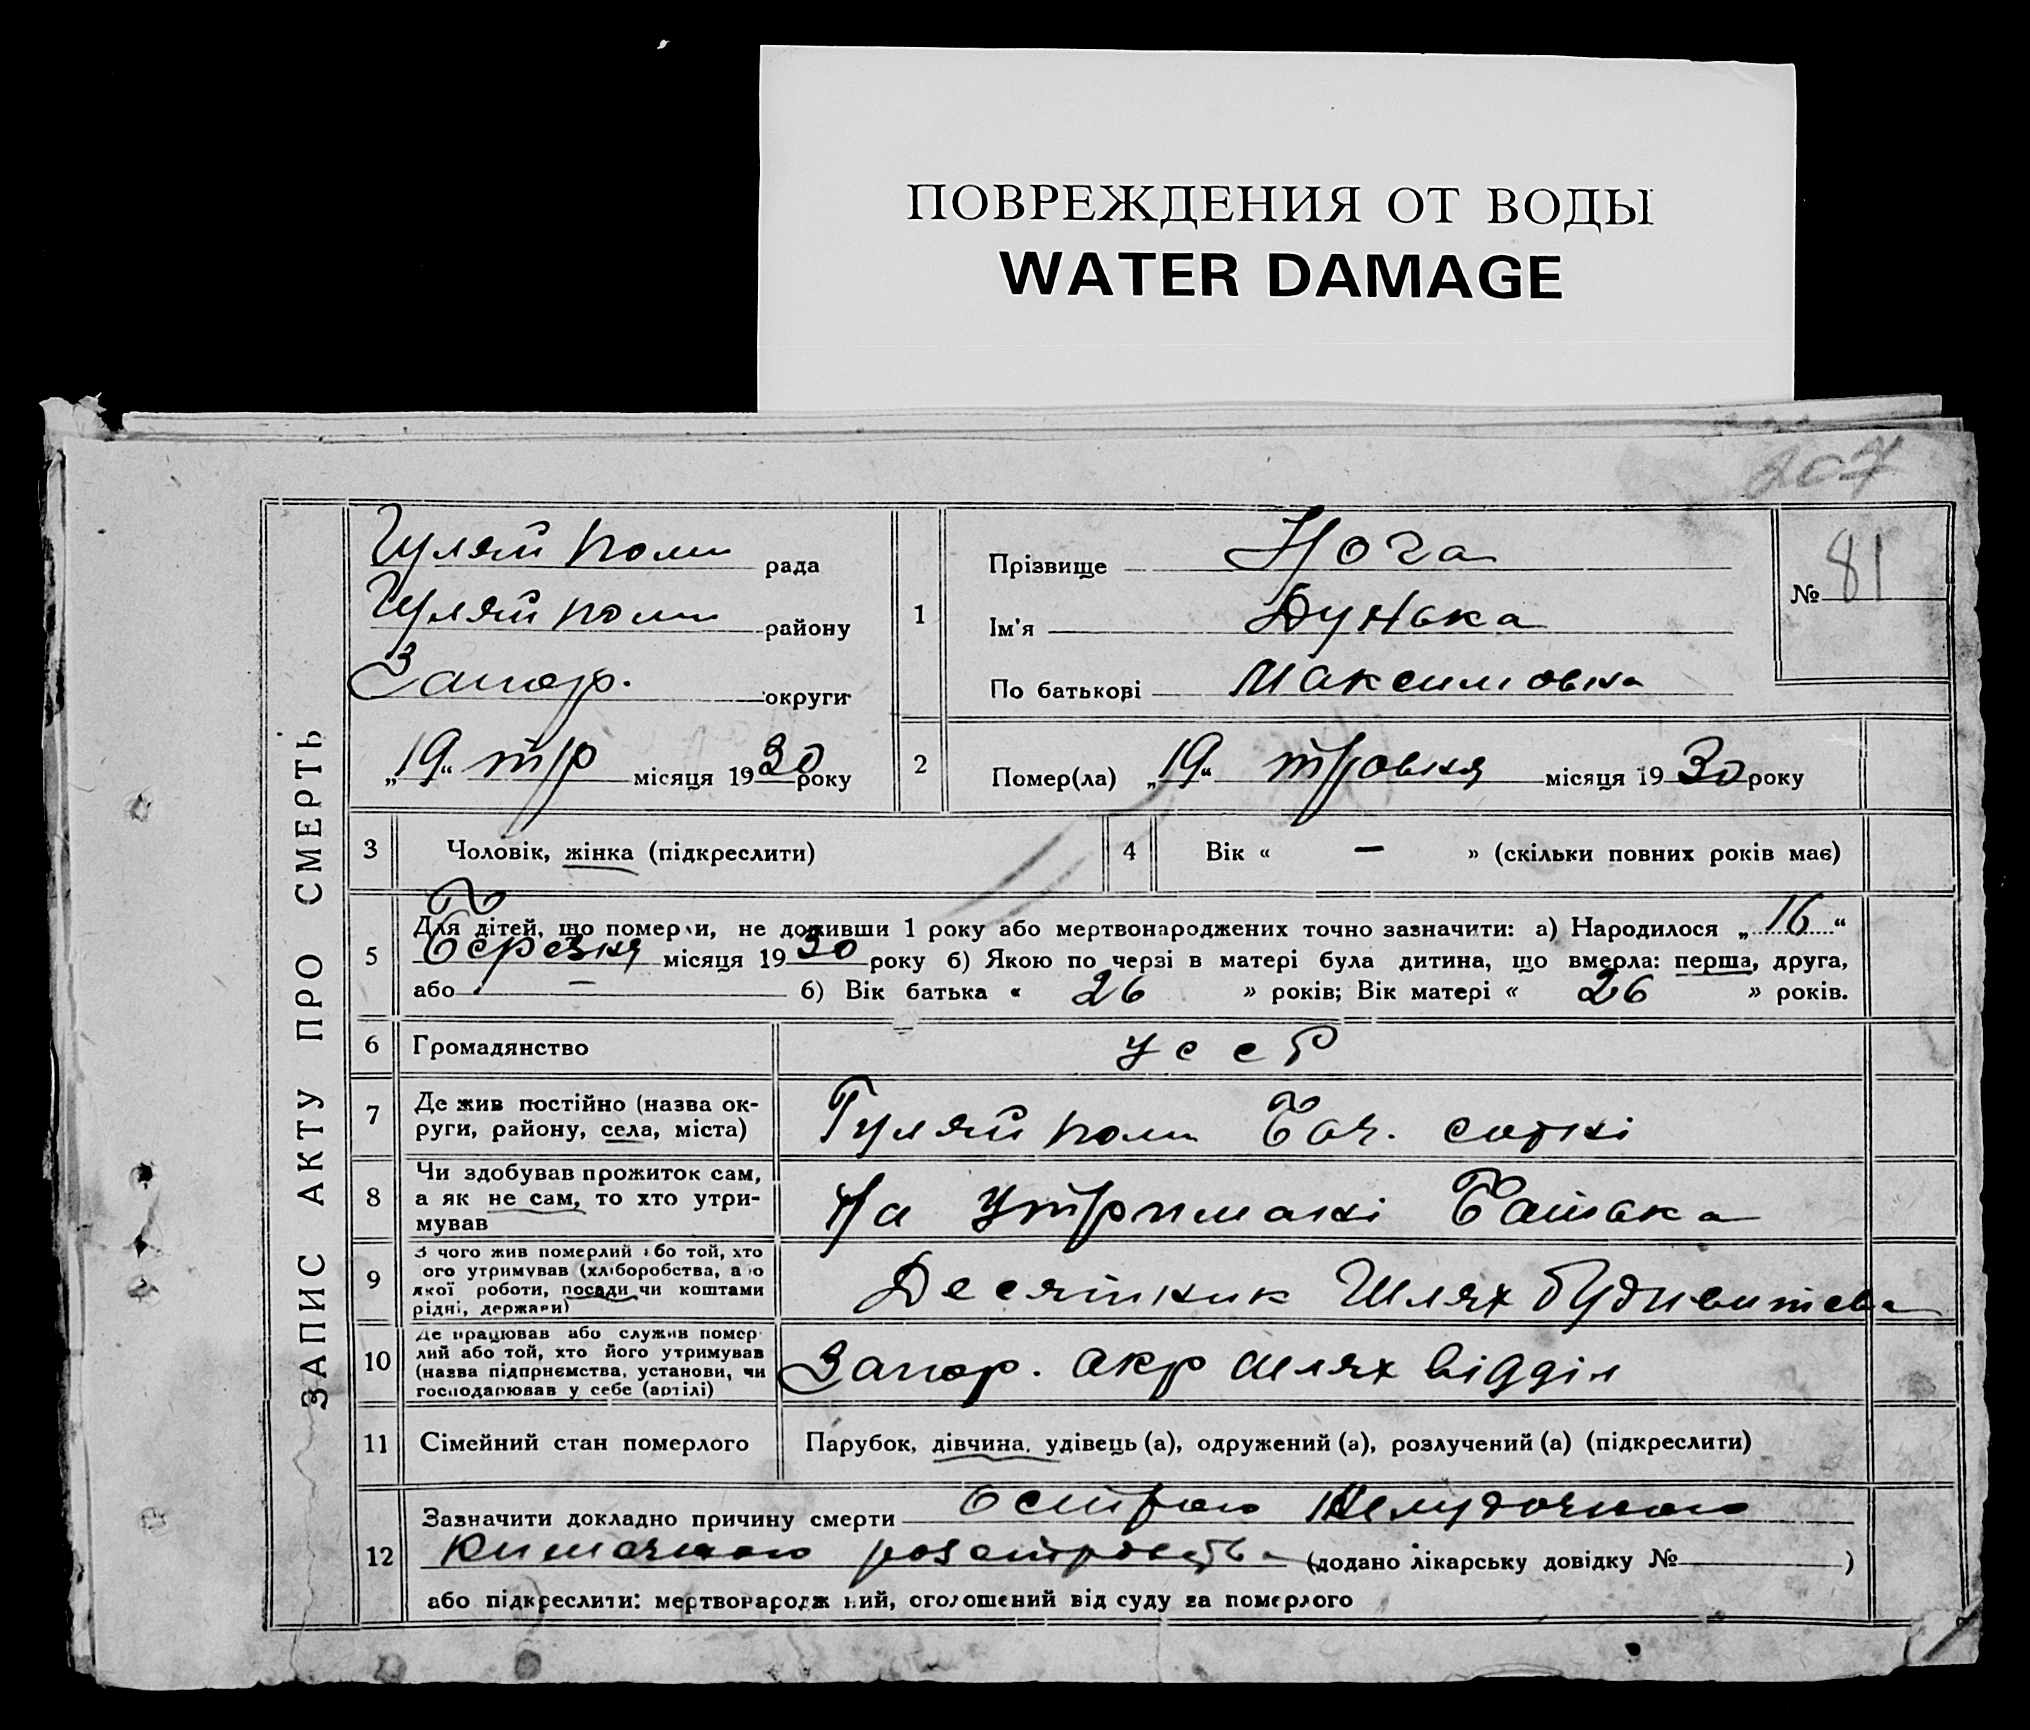 ПОВРЕЖДЕНИЯ ОТ ВОДЫ
WATER DAMAGE
207
ЗАПИС АКТУ ПРО СМЕРТЬ
Гуляй поли рада
Гуляй поли району
Запор. округи
„19“ тр місяця 1930 року
1
Прізвище Нога
Ім'я Дунька
По батькові Максимовна
№ 81
2 Помер(ла) „19“ тровня місяця 1930 року
3 Чоловік, жінка (підкреслити)
4 Вік « — » (скільки повних років має)
5 Для дітей, що померли, не доживши 1 року або мертвонароджених точно зазначити: а) Народилося „16“
Березня місяця 1930 року б) Якою по черзі в матері була дитина, що вмерла: перша, друга,
або — б) Вік батька « 26 » років; Вік матері « 26 » років.
6 Громадянство УССР
7 Де жив постійно (назва ок-
руги, району, села, міста)
Гуляй поли Боч. сотні
8 Чи здобував прожиток сам,
а як не сам, то хто утри-
мував
На утримані Батька
9 З чого жив померлий або той, хто
ого утримував (хліборобства, а о
якої роботи, посади чи коштами
рідні, держави)
Десятник Шлях
10 Де працював або служив помер
лий або той, хто його утримував
(назва підприємства, установи, чи
господарював у себе (артілі)
Запор. окр шлях відділ
11 Сімейний стан померлого
Парубок, дівчина, удівець (а), одружений (а), розлучений (а) (підкреслити)
12 Зазначити докладно причину смерти острого Желудочного
Кишечного (додано лікарську довідку № )
або підкреслити: мертвонародж ний, оголошений від суду за померлого